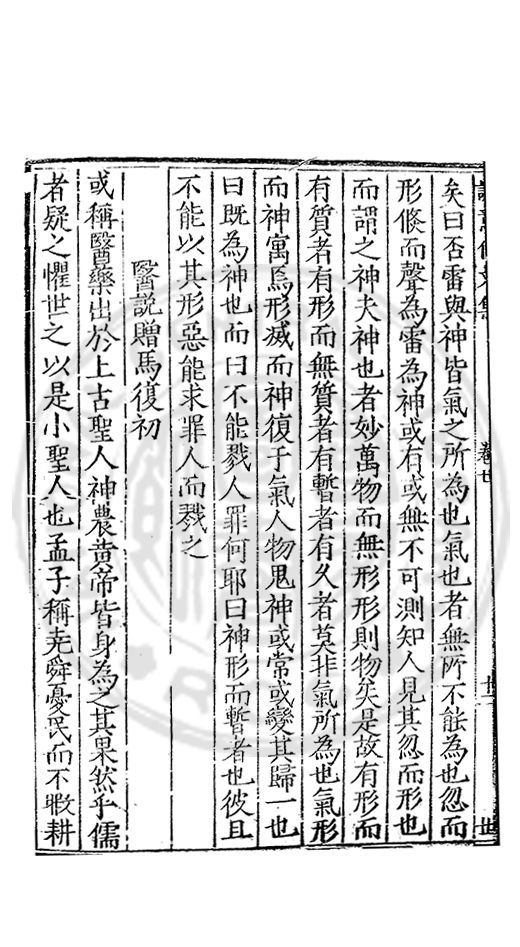 矣曰否雷與神皆氣之所為也氣也者無所不能為也忽而
形倐而聲為雷為神或有或無不可測知人見其忽而形也
而謂之神夫神也者妙萬物而無形形則物矣是故有形而
有質者有形而無質者有暫者有久者莫非氣所為也氣形
而神寓焉形滅而神復于氣人物鬼神或常或變其歸一也
曰既為神也而曰不能戮人罪何耶曰神形而暫者也彼且
不能以其形惡能求罪人而戮之
醫説贈馬復初
或稱醫藥出於上古聖人神農黄帝皆身為之其果然乎儒
者疑之懼世之以是小聖人也孟子稱尭舜憂民而不暇耕